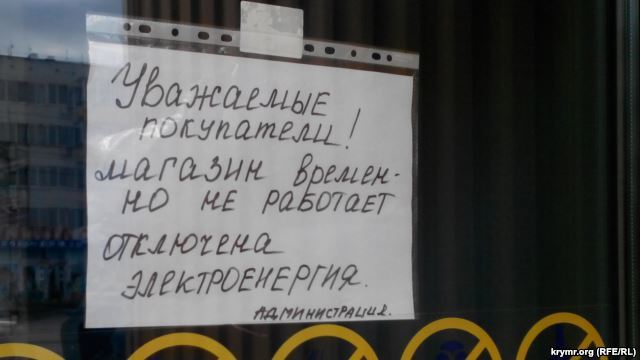 Уважаемые
покупатели!
магазин времен-
но не работает
отключена
электроенергия.
Администрация.
krymr.org (RFE/RL)